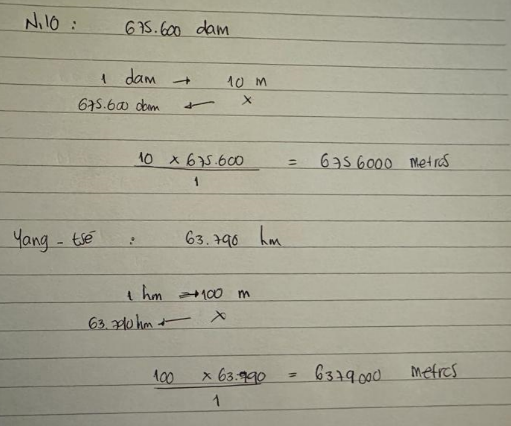 Nilo : 675.600 dam
1 dam → 10 m
675.600 dam ← x
10 x 675.600 = 6756000 metros
1
Yang-tsé : 63.790 hm
1 hm → 100 m
63.790 hm ← x
100 x 63.790 = 6379000 metros
1